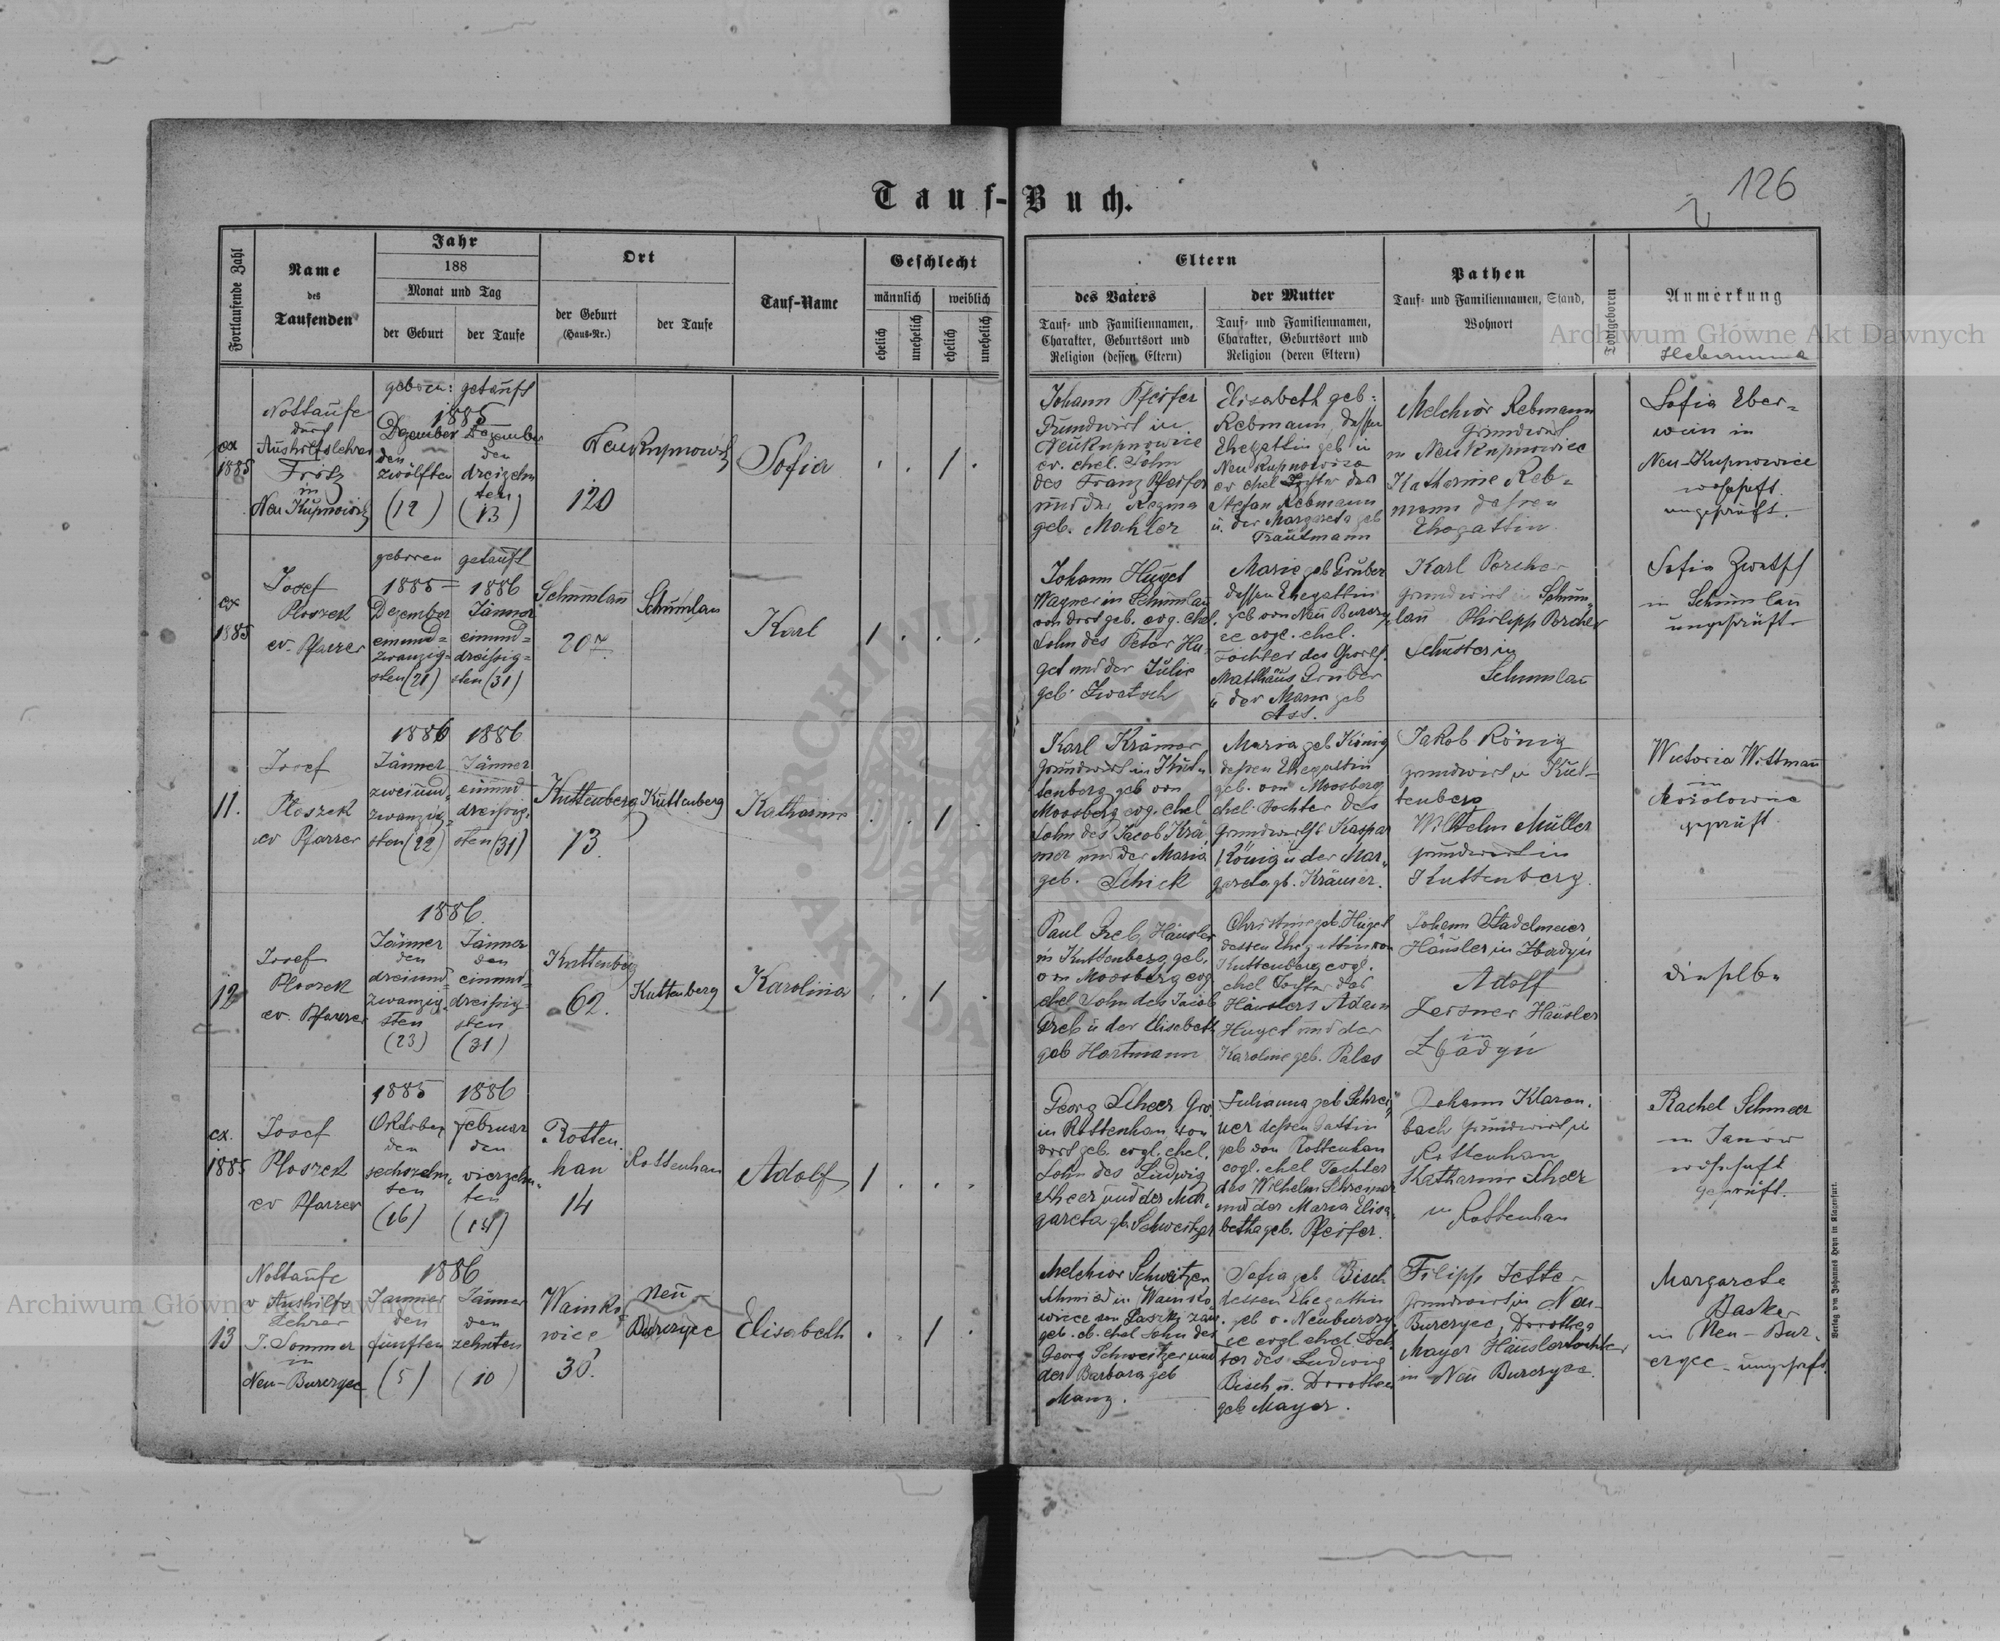 126
Tauf-Buch.
Fortlaufende Zahl
Name
des
Taufenden
Jahr
188
Monat und Tag
der Geburt
der Taufe
Ort
der Geburt
(Haus-Nr.)
der Taufe
Tauf-Name
Geschlecht
männlich
weiblich
ehelich
unehelich
ehelich
unehelich
Eltern
des Vaters
Tauf- und Familiennamen,
Charakter, Geburtsort und
Religion (dessen Eltern)
der Mutter
Tauf- und Familiennamen,
Charakter, Geburtsort und
Religion (deren Eltern)
Pathen
Tauf- und Familiennamen, Stand,
Wohnort
Todtgeboren
Anmerkung
Hebamme
ex
1885
Nottaufe
durch
Aushilfslehrer
Fritz
in
Neu Kupnowitz
geboren: getauft
1885
Dezember
den
zwölften
(12)
Dezember
den
dreizehn
ten
(13)
Neu Kupnowitz
120
Sofia
Johann Pfeifer
Grundwirt in
Neukupnowice
ev. ehel. Sohn
des Franz Pfeifer
und der Regina
geb. Machler
Elisabeth geb:
Rebmann, dessen
Ehegattin geb in
Neu Kupnowice
ev ehel Tochter des
Stefan Rebmann
u. der Margareta geb
Trautmann
Melchior Rebmann
Grundwirt
in Neu Kupnowice
Katharine Reb-
mann dessen
Ehegattin
Sofia Eber-
wein in
Neu-Kupnowice
wohnhaft
ungeprüft.
ex
1885
Josef
Ploszek
ev. Pfarrer
geboren getauft
1885 = 1886
Dezember
einund=
zwanzig=
sten (21)
Jänner
einund=
dreissig=
sten (31)
Schumlau
207
Schumlau
Karl
Johann Huget
Wagner in Schumlau
von dort geb. evg. ehel.
Sohn des Peter Hu-
get und der Julie
geb. Zwatsch
Marie geb Gruber
dessen Ehegattin
geb von Neu Burczy-
ce evgl. ehel.
Tochter des Grwlf.
Mathäus Gruber
u der Mann geb
Ass.
Karl Porcher
Grundwirt in Schum-
lau Philipp Porcher
Schuster in
Schumlau
Sofia Zwatsch
in Schumlau
ungeprüft
11.
Josef
Ploszek
ev Pfarrer
1886 1886
Jänner
zweiund-
zwanzig-
sten (22)
Jänner
einund
dreissig-
sten (31)
Kuttenberg
13.
Kuttenberg
Katharina
Karl Krämer
Grundwirt in Kut-
tenberg geb von
Moosberg evg. ehel
Sohn des Jacob Krä
mer und der Maria
geb. Schick
Maria geb König
dessen Ehegattin
geb. von Moosberg
ehel. Tochter des
Grundwirths Kaspar
König u der Mar-
gareta gb. Krämer.
Jakob König
Grundwirt in Kut-
tenberg
Wilhelm Müller
Grundwirt in
Kuttenberg.
Victoria Wittmann
in
Mozolowie
geprüft.
12
Josef
Ploszek
ev. Pfarrer
1886.
Jänner
den
dreiund-
zwanzig-
sten
(23)
Jänner
den
einund=
dreissig
sten
(31)
Kuttenberg
62.
Kuttenberg
Karolina
Paul Greb, Häusler
in Kuttenberg geb.
von Moosberg evg
ehel Sohn des Jacob
Greb u der Elisabeth
geb Hartmann
Christine geb. Huget
dessen Ehegattin von
Kuttenberg evgl.
ehel Tochter des
Häuslers Adam
Huget und der
Karoline geb. Palos
Johann Stadelmeier
Häusler in Zbadyń
Adolf
Zersner Häusler
in
Zbadyń
dieselbe
ex.
1885
Josef
Ploszek
ev Pfarrer
1885 1886
Oktober
den
sechszehn-
ten
(16)
Februar
den
vierzehn-
ten
(14)
Rotten-
han
14
Rottenhan
Adolf
Georg Scheer Gro.
in Rottenhan von
dort geb. evgl. ehel.
Sohn des Ludwig
Scheer und der Mar-
gareta gb. Schweitzer
Julianna geb Schrei-
ner dessen Gattin
geb von Rottenhan
evgl. ehel Tochter
des Wilhelm Schreiner
und der Maria Elisa-
betha geb. Pfeifer.
Johann Klaren-
bach Grundwirt in
Rottenhan
Katharine Scheer
in
Rottenhan
Rachel Schmeer
in Janow
wohnhaft
geprüft.
13
Nottaufe
v Aushilfs
Lehrer
J. Sommer
in
Neu-Burczyce
1886
Jänner
den
fünften
(5)
Jänner
den
zehnten
(10)
Wainko
wice
30.
Neu-
Burczyce
Elisabeth
Melchior Schweitzer
Schmied in Wainko-
wice von Laszki zaw.
geb. ev. ehel Sohn des
Georg Schweitzer und
der Barbara geb
Manz.
Sofia geb Bisch
dessen Ehegattin
geb v. Neuburczy-
ce evgl ehel Toch-
ter des Ludwig
Bisch u. Dorothea
geb Mayer.
Filipp Jetter
Grundwirt in Neu-
Burczyce, Dorothea
Mayer Häuslerstochter
in Neu Burczyce.
Margarete
Basker
in Neu-Bur-
czyce ungeprüft.
Verlag von Johannes Heyn in Klagenfurt.
Archiwum Główne Akt Dawnych
Archiwum Główne Akt Dawnych